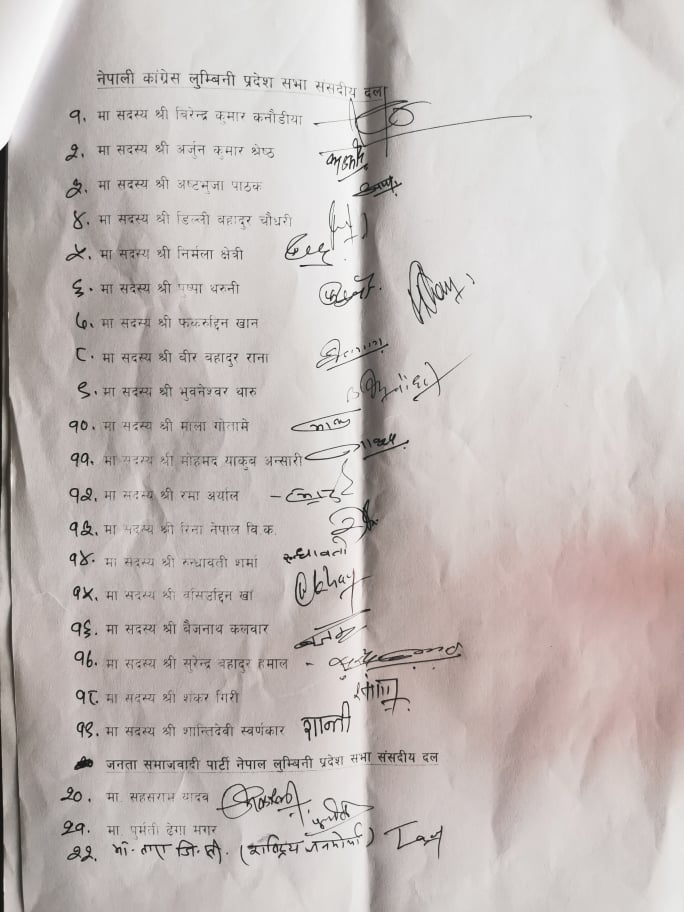 नेपाली कांग्रेस लुम्बिनी प्रदेश सभा संसदीय दल
१. मा सदस्य श्री बिरेन्द्र कुमार कनौडीया
२. मा सदस्य श्री अर्जुन कुमार श्रेष्ठ
३. मा सदस्य श्री अष्टभुजा पाठक
४. मा सदस्य श्री डिल्ली बहादुर चौधरी
५. मा सदस्य श्री निर्मला क्षेत्री
६. मा सदस्य श्री पुष्पा थरुनी
७. मा सदस्य श्री फकरुद्दिन खान
८. मा सदस्य श्री बीर बहादुर राना
९. मा सदस्य श्री भुवनेश्वर थारु
१०. मा सदस्य श्री माला गोतामे
११. मा सदस्य श्री मोहमद याकुब अन्सारी
१२. मा सदस्य श्री रमा अर्याल
१३. मा सदस्य श्री रिना नेपाल बि.क.
१४. मा सदस्य श्री रुन्धावती शर्मा रुन्धावती
१५. मा सदस्य श्री खाँ
१६. मा सदस्य श्री बैजनाथ कलवार
१७. मा सदस्य श्री सुरेन्द्र बहादुर हमाल -
१८. मा सदस्य श्री शंकर गिरी
१९. मा सदस्य श्री शान्तिदेवी स्वर्णकार शान्ती
जनता समाजवादी पार्टी नेपाल लुम्बिनी प्रदेश सभा संसदीय दल
२०. मा. सहसराम यादव
२१. मा. पुर्मती ढेगा मगर
२२. मा. तारा जि.सी. (राष्ट्रिय जनमोर्चा)